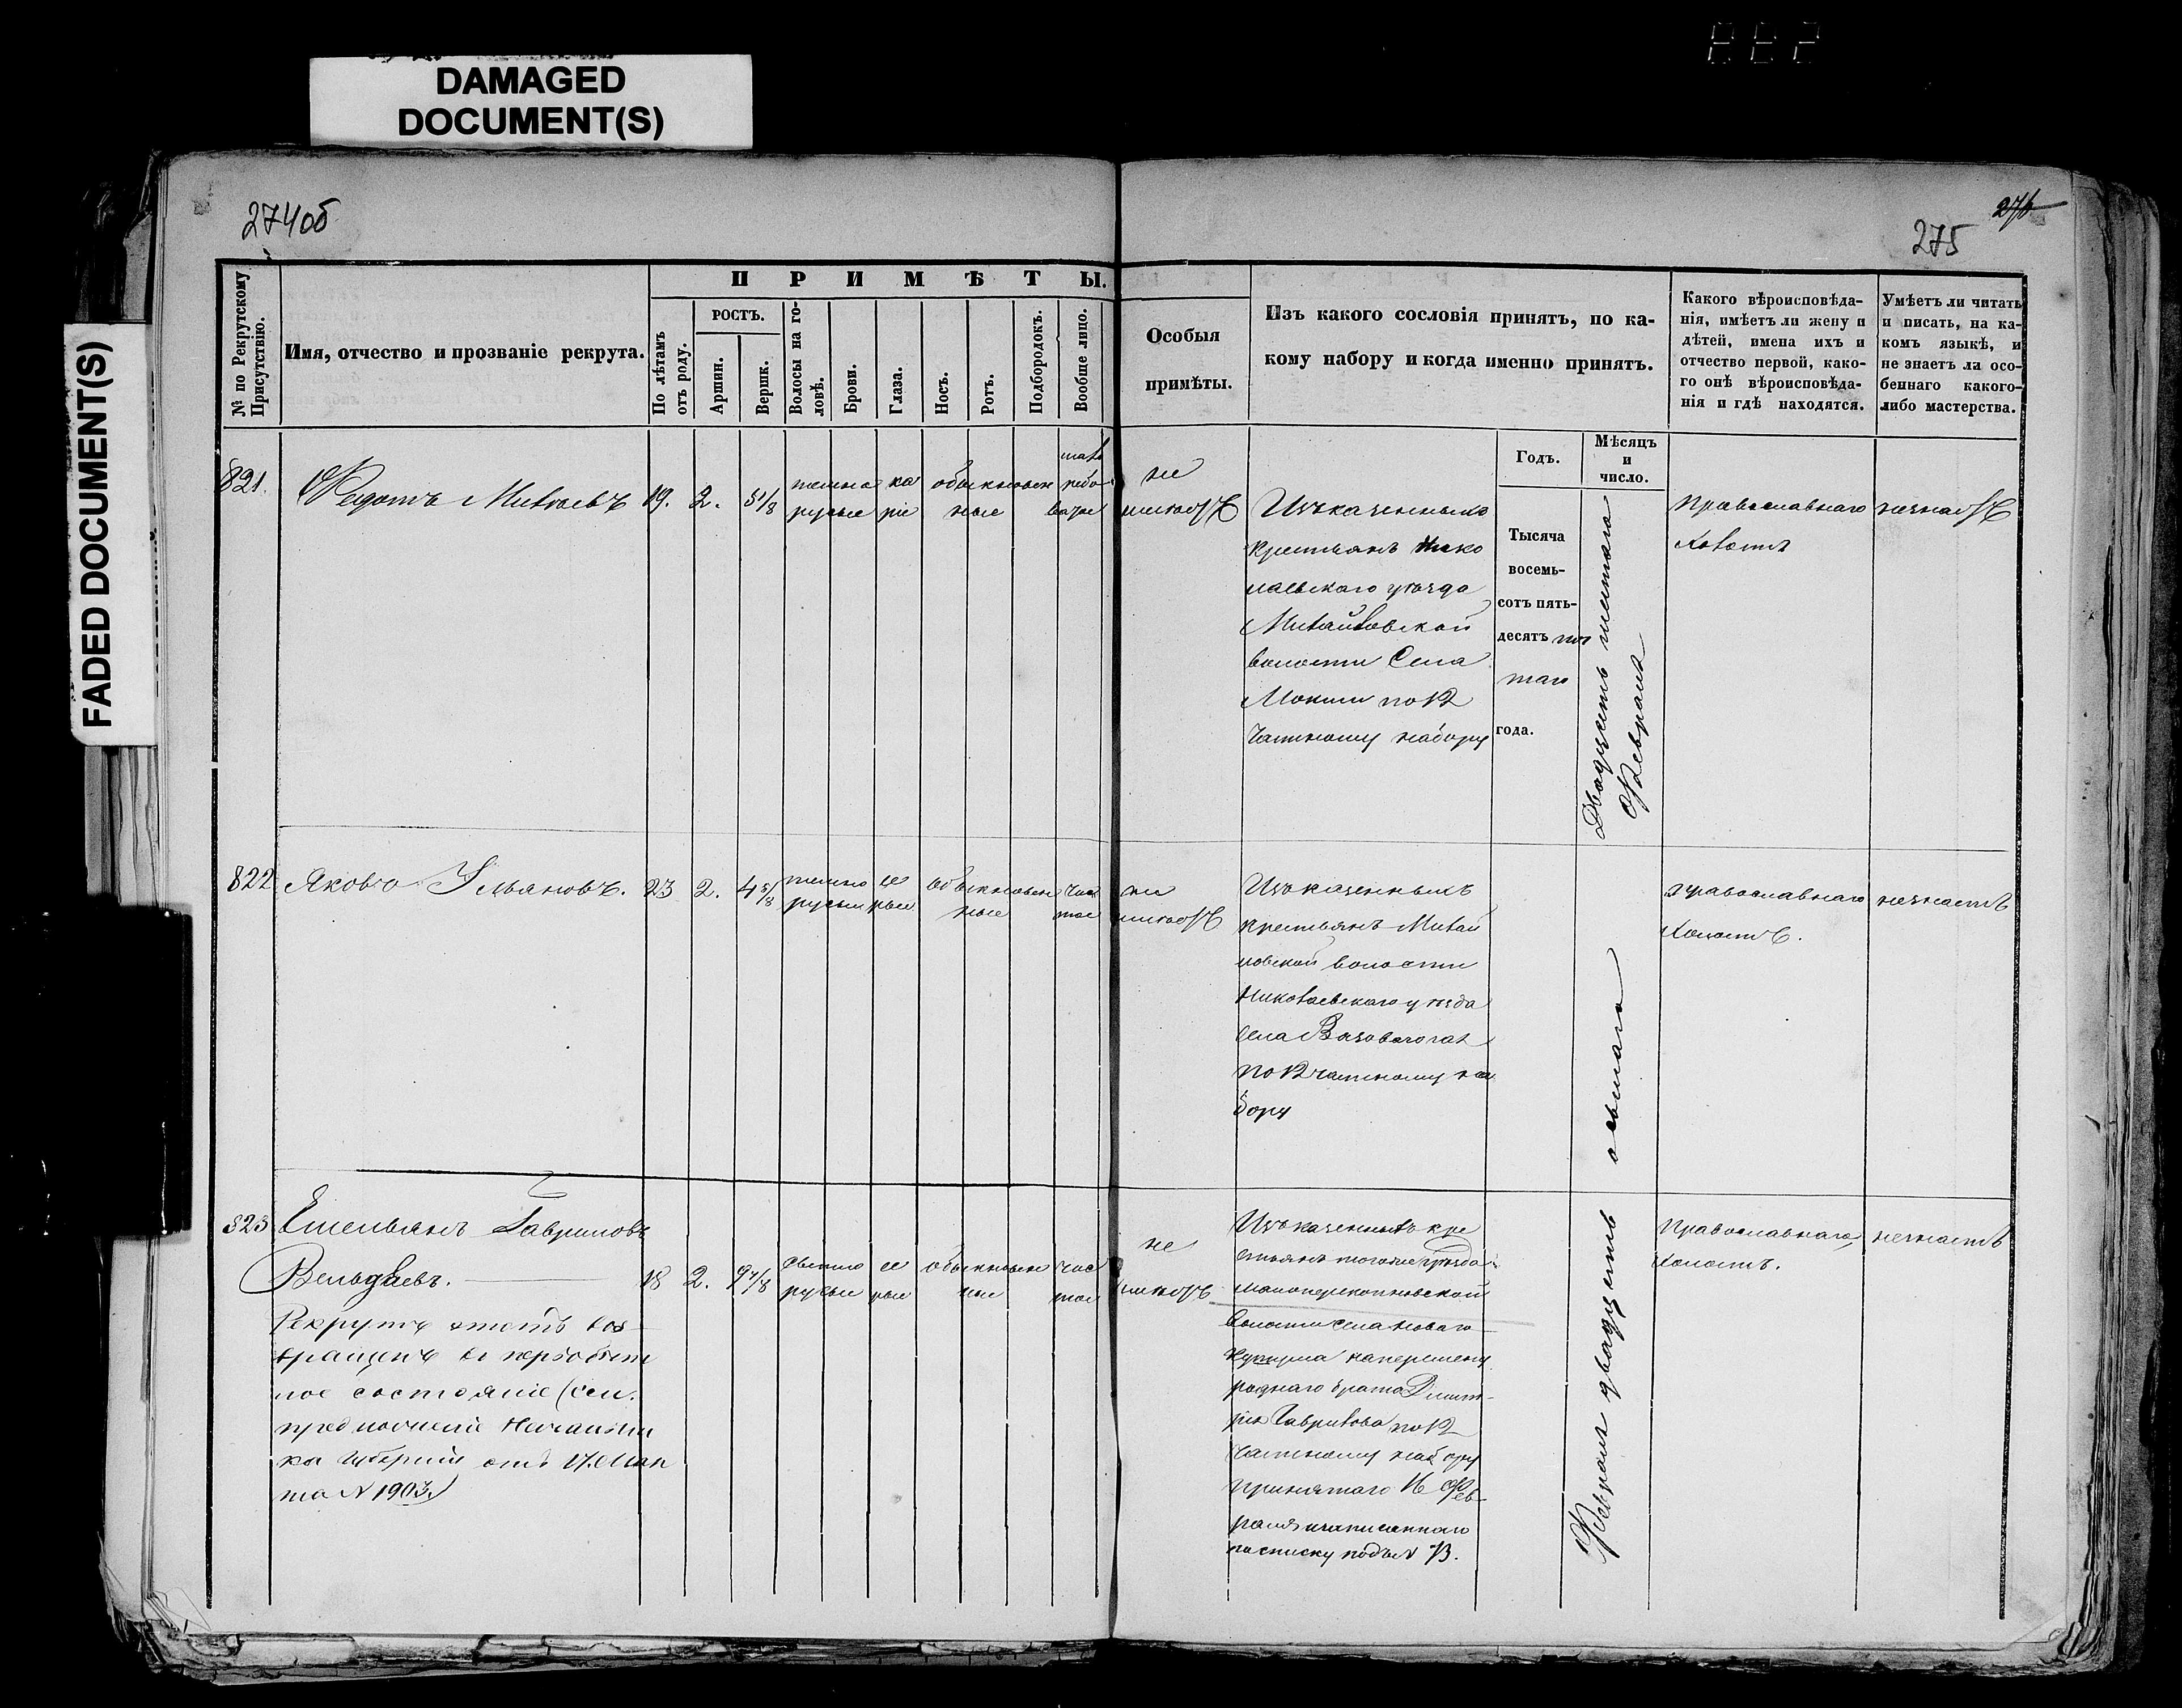 DAMAGED
DOCUMENT(S)
FADED DOCUMENT(S)
274об
276
275
№ по Рекрутскому
Присутствію.
Имя, отчество и прозваніе рекрута.
ПРИМѢТЫ.
По лѣтамъ
отъ роду.
РОСТЪ.
Аршин.
Вершк.
Волосы на го-
ловѣ.
Брови.
Глаза.
Носъ.
Ротъ.
Подбородокъ.
Вообще лицо.
Особыя
примѣты.
Изъ какого сословія принятъ, по ка-
кому набору и когда именно принятъ.
Какого вѣроисповѣда-
нія, имѣетъ ли жену и
дѣтей, имена ихъ и
отчество первой, како-
го онѣ вѣроисповѣда-
нія и гдѣ находятся.
Умѣетъ ли читать
и писать, на ка-
комъ языкѣ, и
не знаетъ ли осо-
беннаго какого-
либо мастерства.
Годъ.
Мѣсяцъ
и
число.
821.
Федотъ
19.
2.
5 1/8
темно
русые
ка
ріе
обыкновен
ные
не
имѣетъ
Изъ казенныхъ
крестьянъ Нико
лаевскаго уѣзда
Михайловской
волости Села
Мокши по 12
частному набору
Тысяча
восемь-
сотъ пять-
десятъ пя
таго
года.
Двадцать шестаго
Февраля
Православнаго
Холостъ
незнаетъ
822
Яковъ Ульяновъ.
23
2.
4 5/8
темно
русые
се
рые
обыкновен
ные
чис
тое
не
имѣетъ
Изъ казенныхъ
крестьянъ Михай
ловской волости
Николаевскаго уѣзда
села
по 12 частному на
бору
осьмаго
православнаго
Холостъ.
незнаетъ
823
Емельянъ Гавриловъ
18
2.
9 7/8
свѣтло
русые
се
рые
обыкновен
ные
чис
тое
не
имѣетъ
Рекрутъ этотъ воз
вращенъ въ первобыт
ное состояніе (
Начальни
ка Губерніи отъ 17. Мар
та № 1903)
Изъ казенныхъ кре
стьянъ тогоже уѣзда
малоперекопновской
волости села Новаго
на перемену
роднаго брата Дмит-
рія Гаврилова по 12
частному набору
принятаго 16 Фев-
раля изаписаннаго
по списку подъ №
Февраля двадцать
Православнаго
Холостъ.
незнаетъ